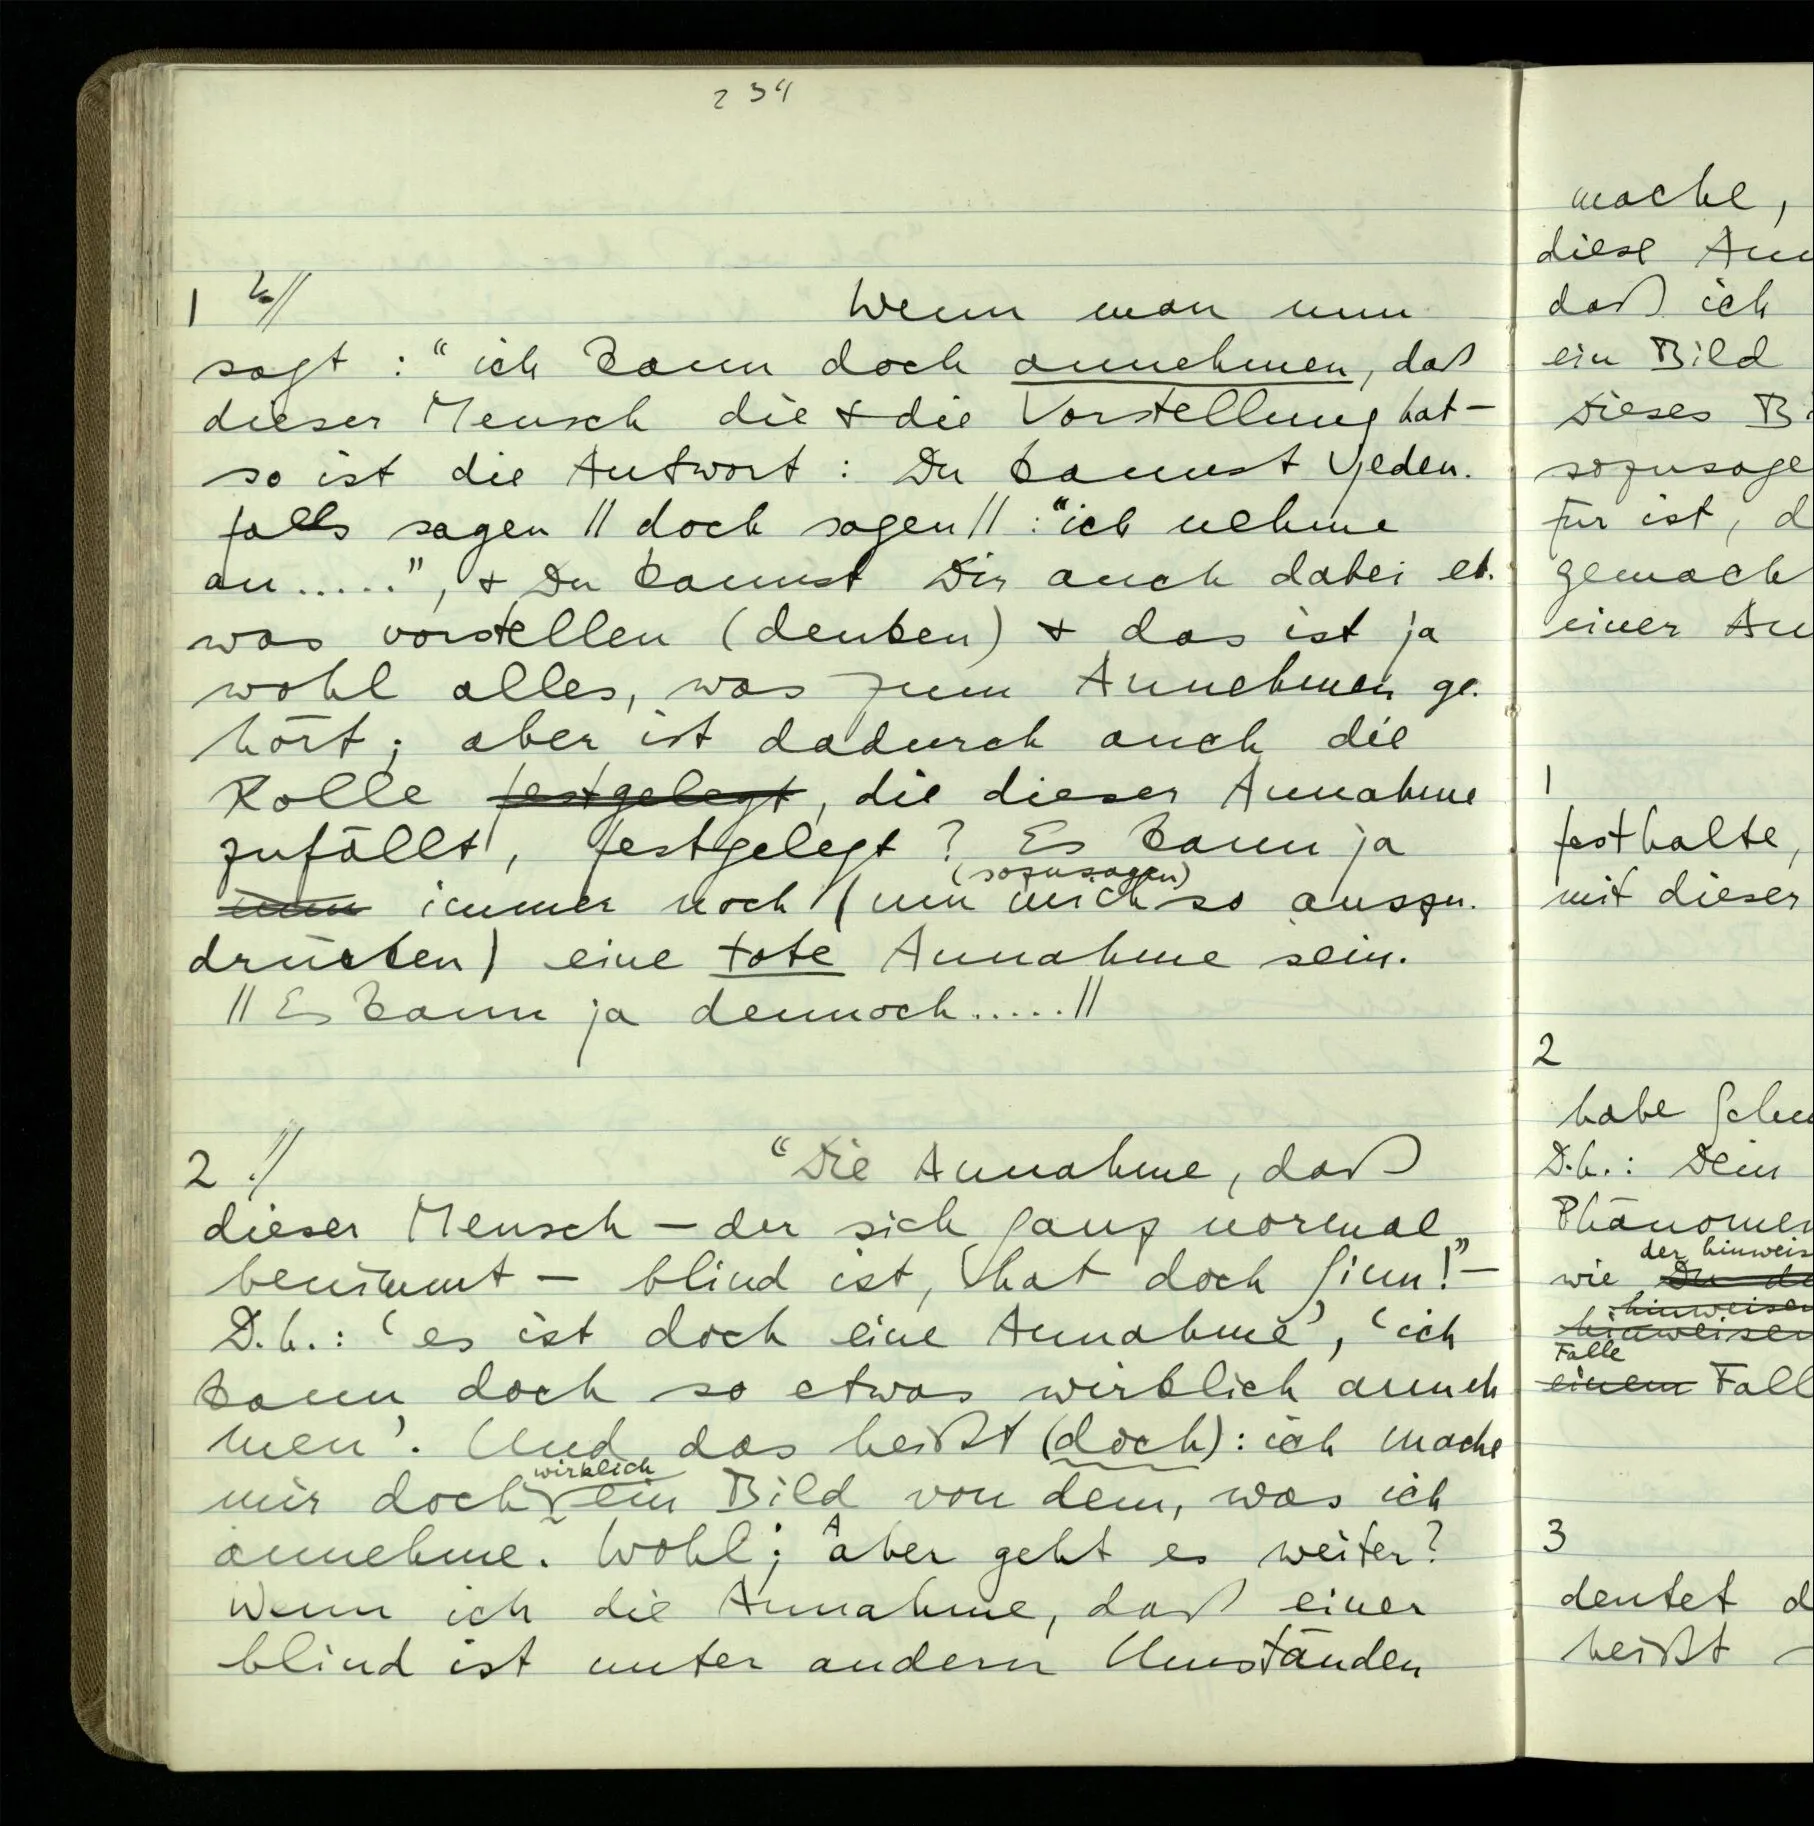 234
1 //
Wenn man nun
sagt : “ich kann doch annehmen, daß
dieser Mensch die & die Vorstellung hat –
so ist die Antwort : Du kannst jeden-
falls sagen // doch sagen // : “ich nehme
an.....”, & Du kannst Dir auch dabei et-
was vorstellen (denken) & das ist ja
wohl alles, was zum Annehmen ge-
hört ; aber ist dadurch auch die
Rolle festgelegt, die dieser Annahme
zufällt, festgelegt ? Es kann ja
(sozusagen)
immer noch (um mich so auszu-
drücken) eine tote Annahme sein.
// Es kann ja dennoch..... //
2 //
“Die Annahme, daß
dieser Mensch – der sich ganz normal
benimmt – blind ist, hat doch Sinn!” –
D.h.: ‘es ist doch eine Annahme’, ‘ich
kann doch so etwas wirklich anneh
men’. Und das heißt (doch): ich mache
wirklich
mir doch ein Bild von dem, was ich
annehme. Wohl; Aber geht es weiter?
Wenn ich die Annahme, daß einer
blind ist unter andern Umständen
mache,
diese An
daß ich
ein Bild
Dieses B
sozusage
für ist, d
gemach
einer An
1
festhalte,
mit dieser
2
habe Schm
D.h.: Dein
Phänomen
der hinweis
wie Du de
hinweisen
hinweisen
Falle
einem Fall
3
deutet d
heißt –